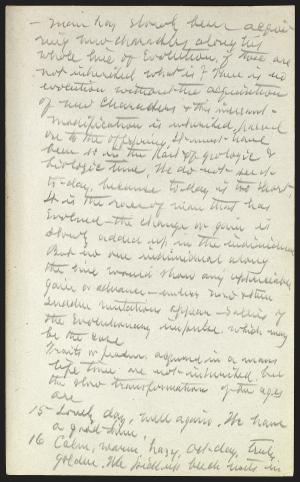 – man has slowly been acquir-
ing new characters along this
whole line of evolution, if these are
not inherited what is? There is no
evolution without the acquisition
of new characters & this
modification is inherited, passed
on to the offspring. It must have
been so in the past of geologic &
biologic time. We do not see it
to-day, because to-day is too short.
It is the race of man that has
evolved – the change or gain is
slowly added up in the individual.
But no one individual along
the line would show any appreciable
gain or advance – unless now & then
sudden mutations appear –
the Evolutionary impulse, which may
be the case.
Traits or powers acquired in a man's
life time are not inherited, but
the slow transformation of the ages
are
15 Lovely day, well again. We have
a good time.
16 Calm, warm, hazy, Oct-day, truly
golden. We pick up beech nuts in